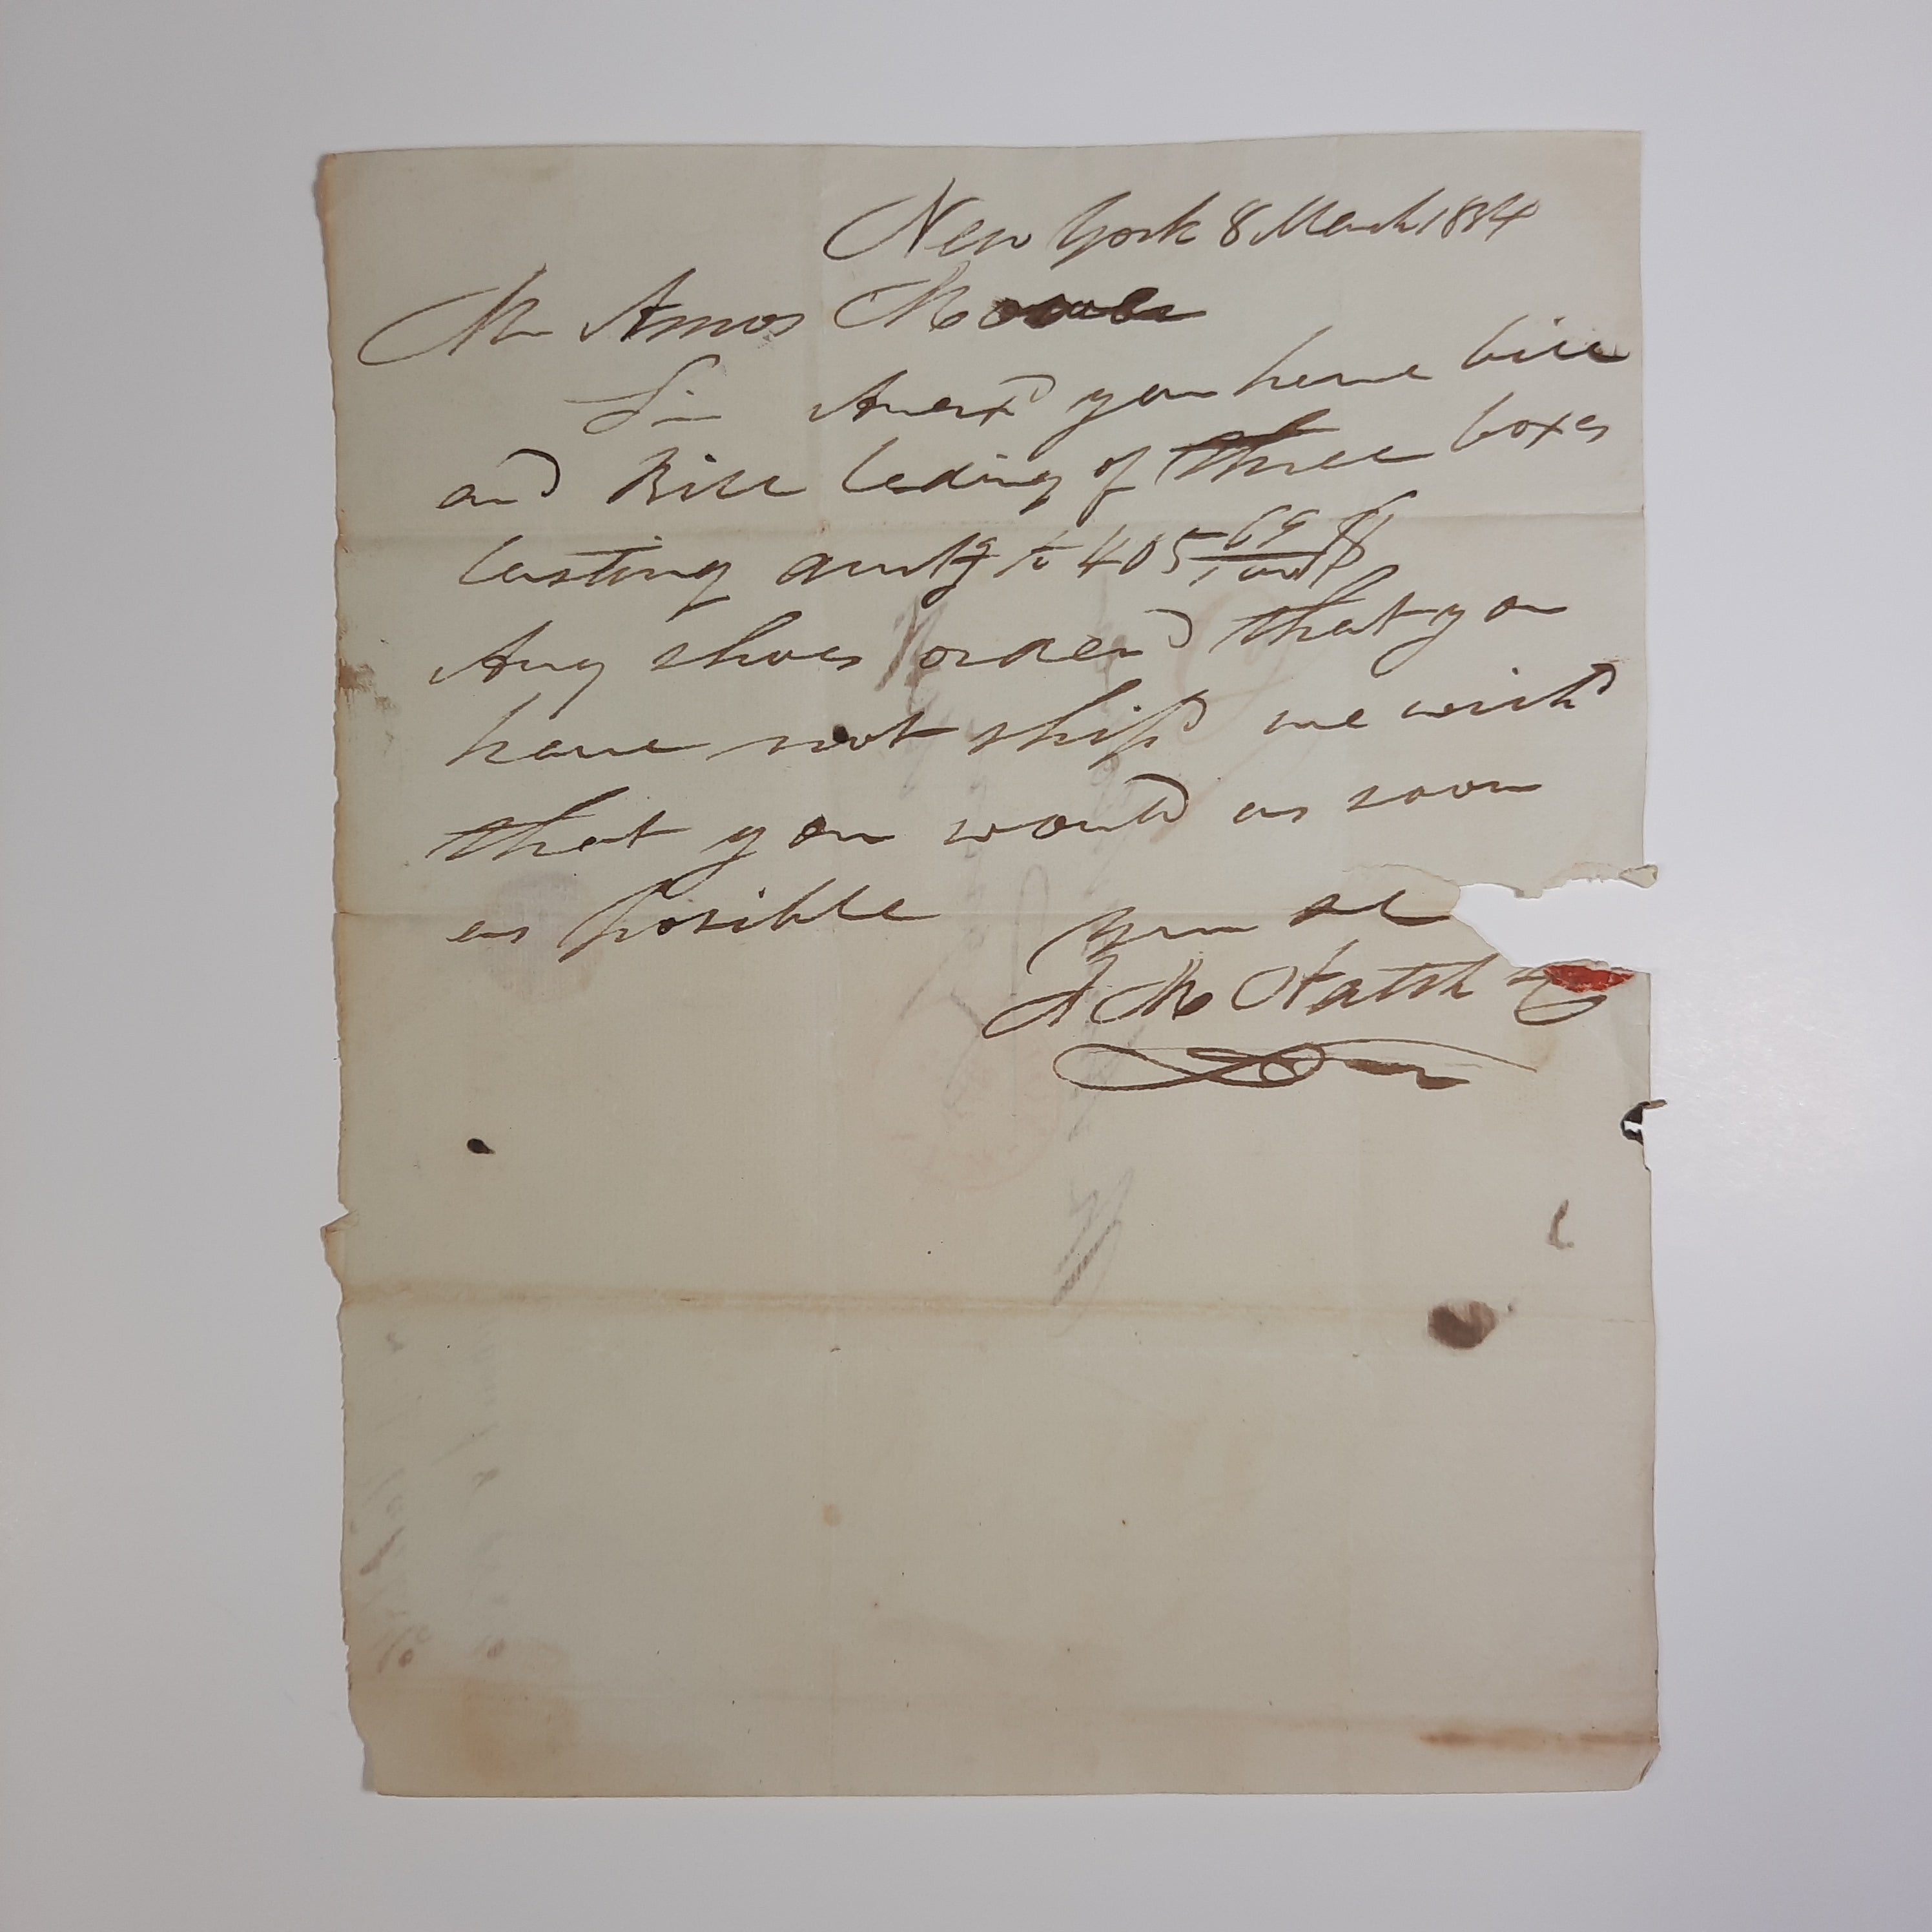 New York 8 March 1834
Mr Amos
Sir Anexd you have bill
and Bill lading of three boxes
lasting amtg to 405 69/100 $
Any shoes orderd that you
have not shipd we wish
that you would as soon
as posible
Yours &c
Hatch & Co